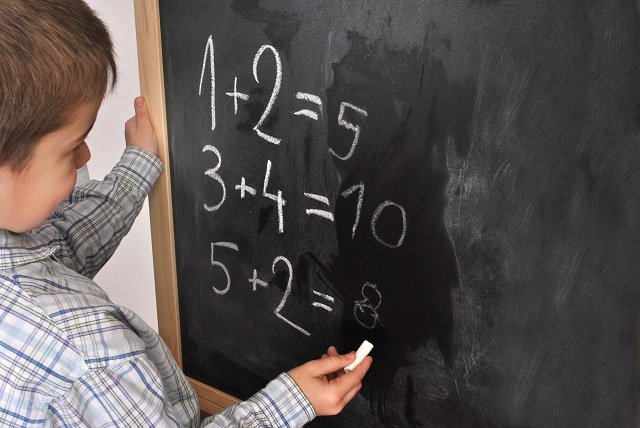 1+2=5
3+4=10
5+2=8